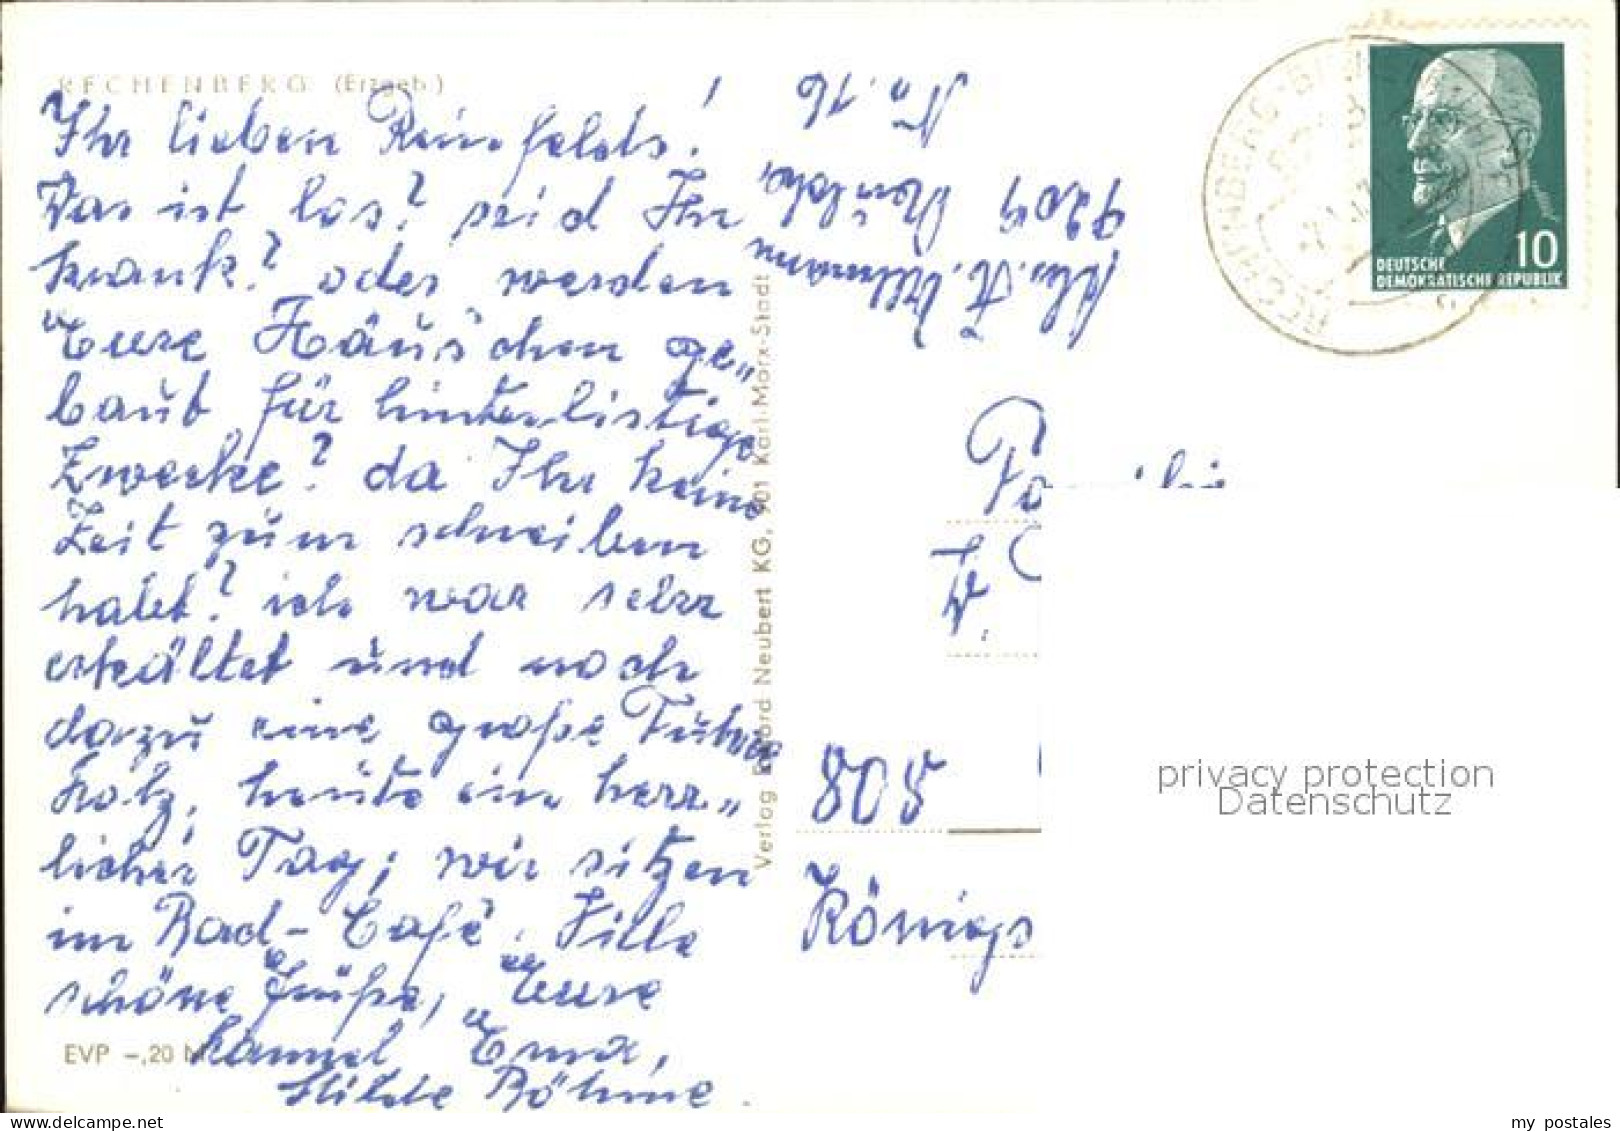 RECHENBERG (Erzgeb.)
Ihr lieben Reinfelds!
Was ist los? seid Ihr
krank? oder werden
Eure Häuschen ge„
baut für hinterlistige
Zwecke? da Ihr keine
Zeit zum schreiben
habt? ich war sehr
erkältet und noch
dazu eine große
heute ein herr„
licher Tag; wir sitzen
im Bad-Café.
schöne Grüße, Eure
Hilde Böhme.
EVP -,20 M
Verlag Erhard Neubert KG, 901 Karl-Marx-Stadt
No. 16
9201
Familie
805
Königs
RECHENBERG-BIENENMÜHLE
10
DEUTSCHE
DEMOKRATISCHE REPUBLIK
privacy protection
Datenschutz
my postales